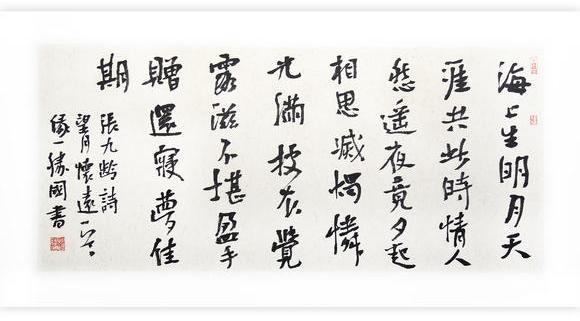 海上生明月天
涯共此時情人
怨遙夜竟夕起
相思滅燭憐
光滿披衣覺
露滋不堪盈手
贈還寢夢佳
期
張九齡詩
望月懷遠一首
緣一勝國書